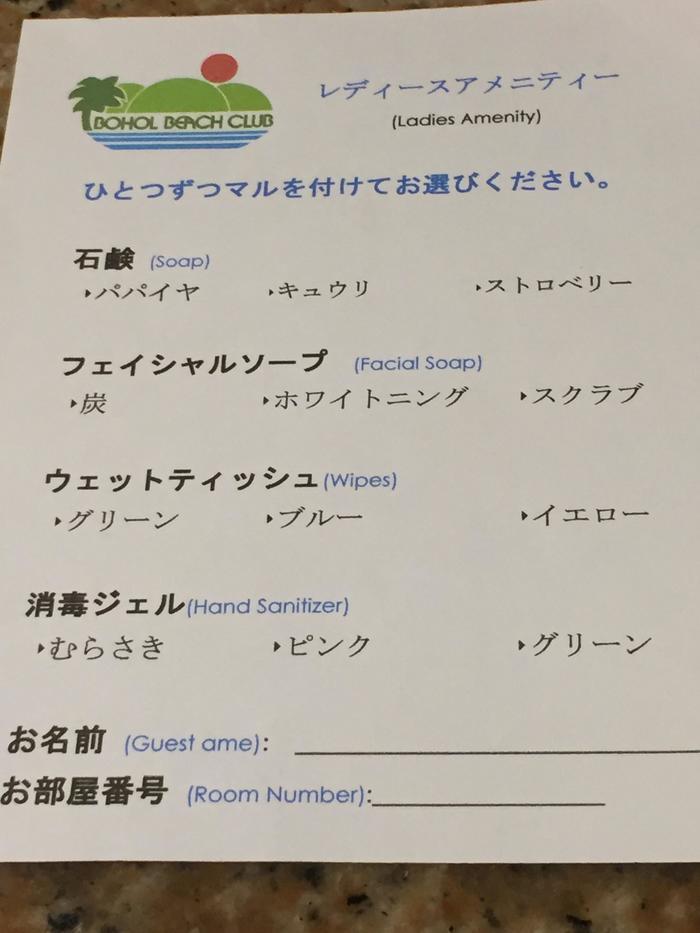 BOHOL BEACH CLUB
レディースアメニティー
(Ladies Amenity)
ひとつずつマルを付けてお選びください。
石鹸 (Soap)
‣パパイヤ ‣キュウリ ‣ストロベリー
フェイシャルソープ (Facial Soap)
‣炭 ‣ホワイトニング ‣スクラブ
ウェットティッシュ(Wipes)
‣グリーン ‣ブルー ‣イエロー
消毒ジェル(Hand Sanitizer)
‣むらさき ‣ピンク ‣グリーン
お名前 (Guest ame):
お部屋番号 (Room Number):